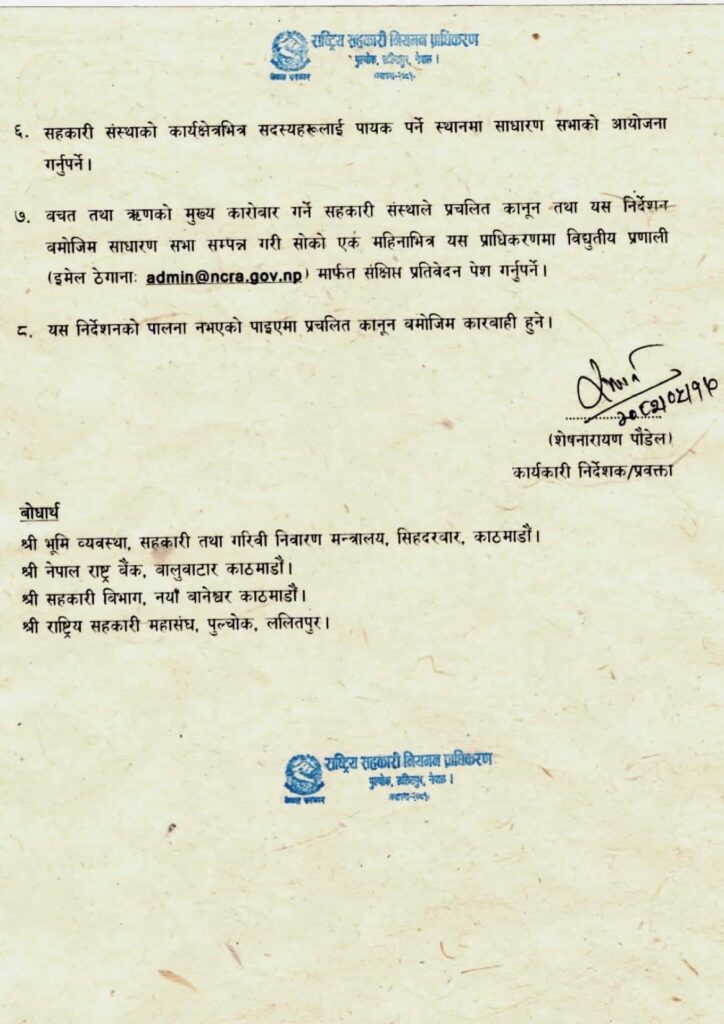 राष्ट्रिय सहकारी नियमन प्राधिकरण
पुल्चोक, ललितपुर, नेपाल ।
नेपाल सरकार
६. सहकारी संस्थाको कार्यक्षेत्रभित्र सदस्यहरूलाई पायक पर्ने स्थानमा साधारण सभाको आयोजना
गर्नुपर्ने ।
७. बचत तथा ऋणको मुख्य कारोबार गर्ने सहकारी संस्थाले प्रचलित कानून तथा यस निर्देशन
बमोजिम साधारण सभा सम्पन्न गरी सोको एक महिनाभित्र यस प्राधिकरणमा विद्युतीय प्रणाली
(इमेल ठेगानाः admin@ncra.gov.np) मार्फत संक्षिप्त प्रतिवेदन पेश गर्नुपर्ने ।
८. यस निर्देशनको पालना नभएको पाइएमा प्रचलित कानून बमोजिम कारबाही हुने ।
(शेषनारायण पौडेल)
कार्यकारी निर्देशक/प्रवक्ता
बोधार्थ
श्री भूमि व्यवस्था, सहकारी तथा गरिवी निवारण मन्त्रालय, सिंहदरबार, काठमाडौं ।
श्री नेपाल राष्ट्र बैंक, वालुवाटार काठमाडौं ।
श्री सहकारी विभाग, नयाँ वानेश्वर काठमाडौं ।
श्री राष्ट्रिय सहकारी महासंघ, पुल्चोक, ललितपुर ।
राष्ट्रिय सहकारी नियमन प्राधिकरण
पुल्चोक, ललितपुर, नेपाल ।
नेपाल सरकार